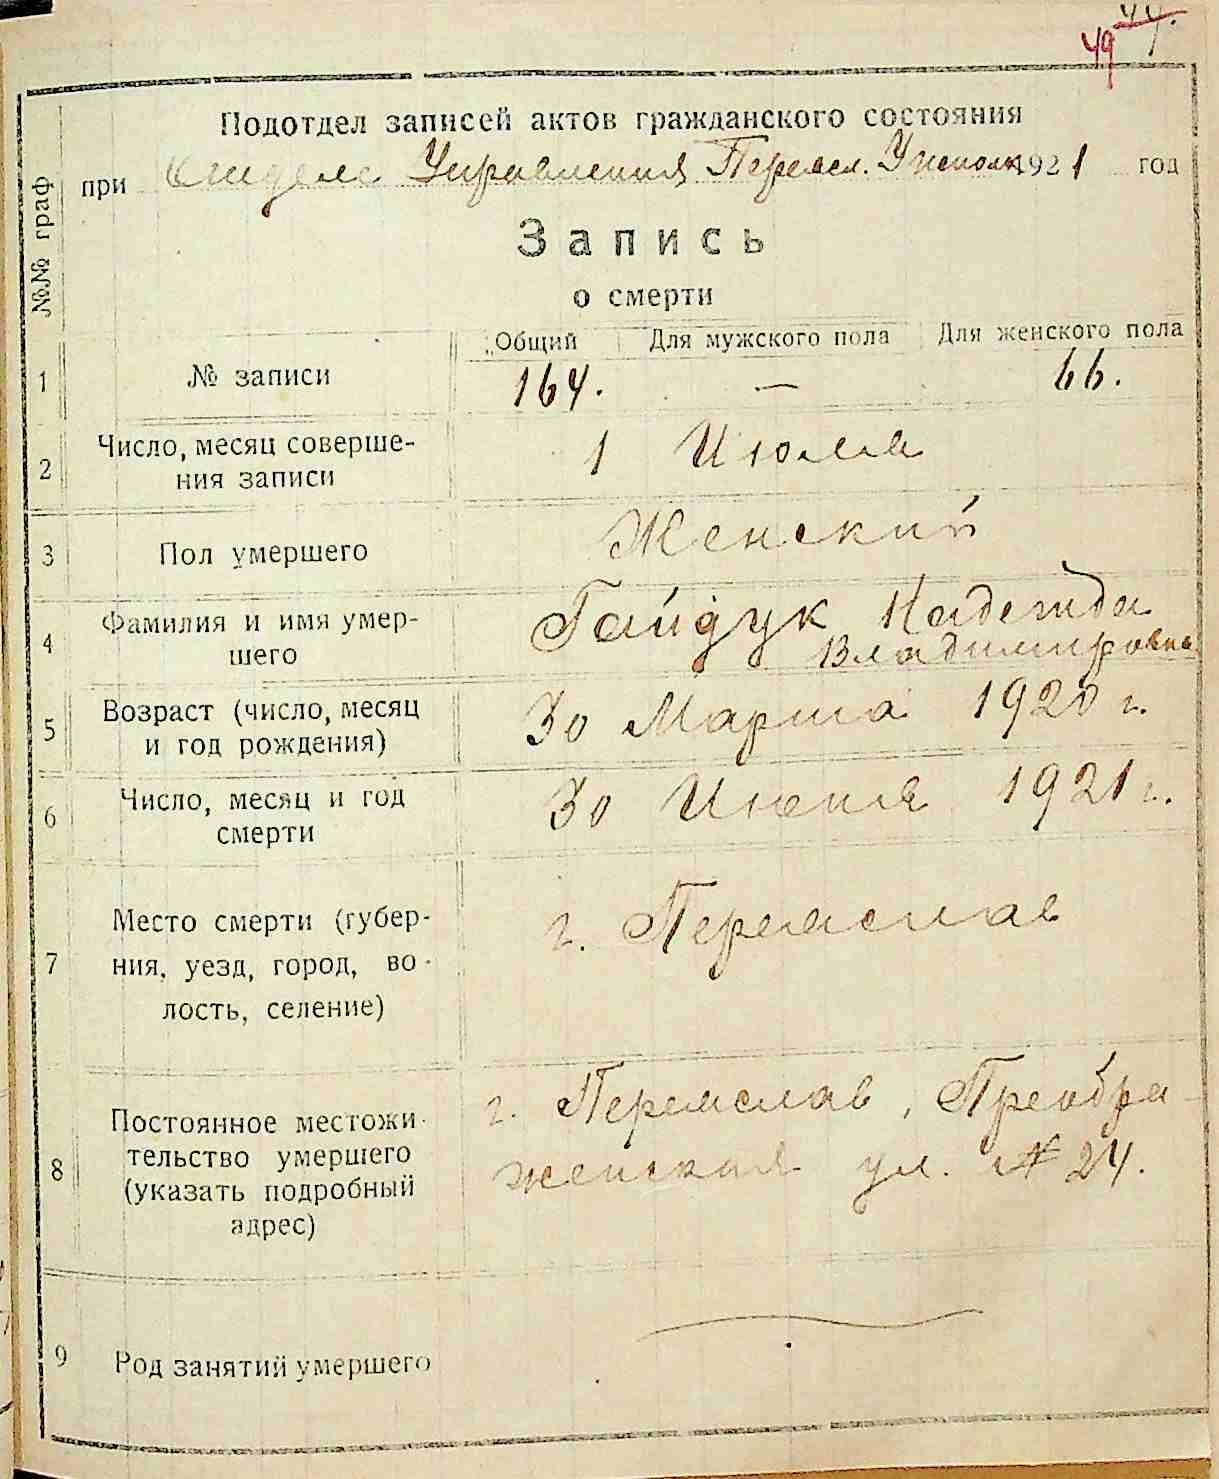 44.
49
Подотдел записей актов гражданского состояния
при Отделе Управления Переясл. Уисполк 1921 год
№№ граф
Запись
о смерти
Общий Для мужского пола Для женского пола
1 № записи 164. — 66.
2 Число, месяц соверше-
ния записи 1 Июля
3 Пол умершего Женский
4 Фамилия и имя умер-
шего Гайдук Надежда
Владимировна
5 Возраст (число, месяц
и год рождения) 30 Марта 1920 г.
6 Число, месяц и год
смерти 30 Июня 1921 г.
7 Место смерти (губер-
ния, уезд, город, во-
лость, селение) г. Переяслав
8 Постоянное местожи-
тельство умершего
(указать подробный
адрес) г. Переяслав, Преобра-
женская ул. № 24.
9 Род занятий умершего